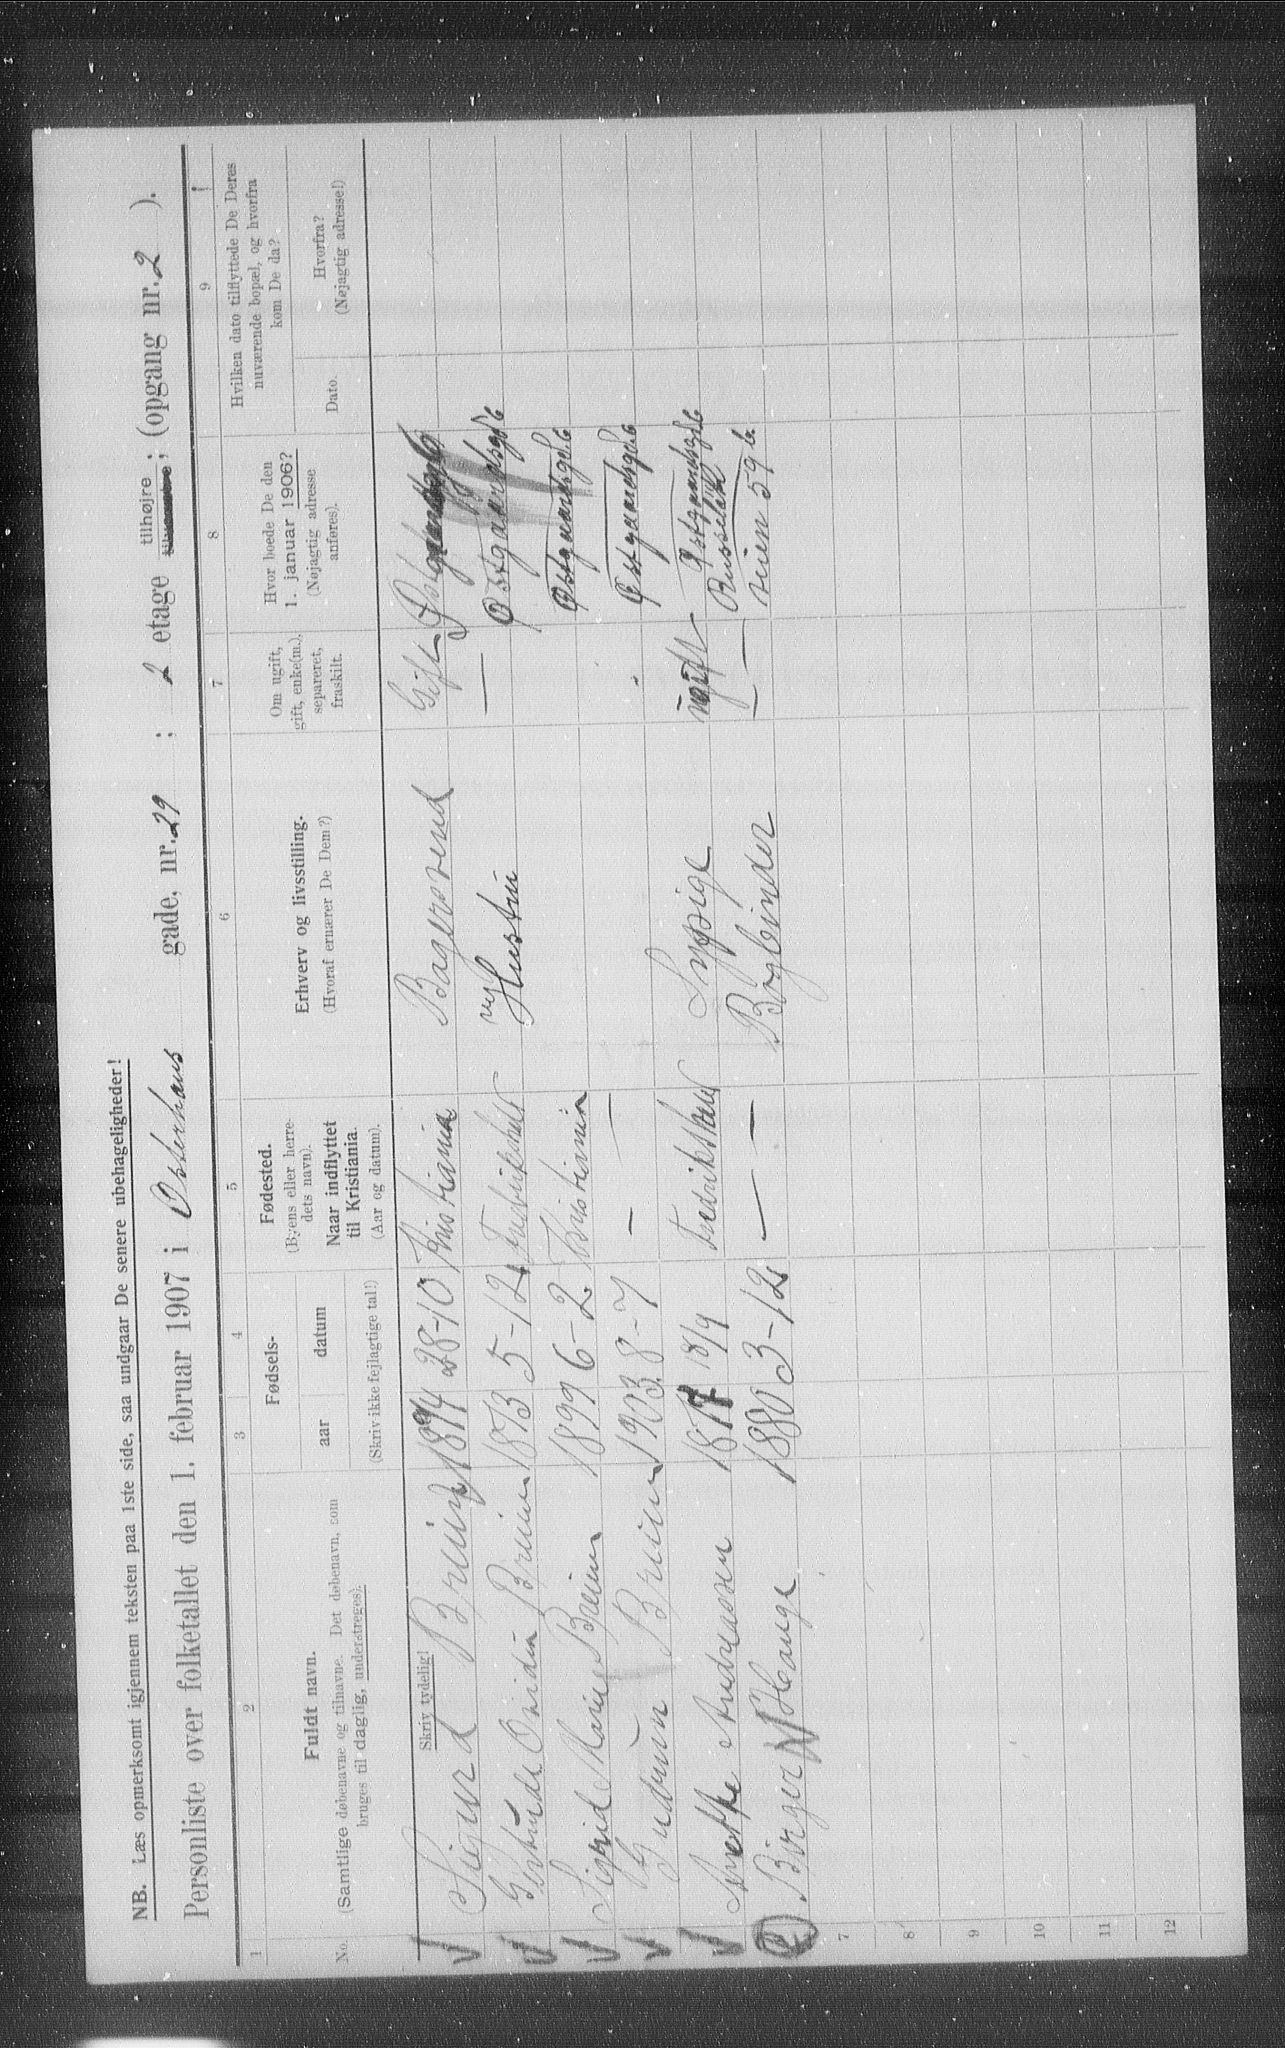 NB. Læs opmerksomt igjennem teksten paa 1ste side, saa undgaar De senere ubehageligheder!
Personliste over folketallet den 1. februar 1907 i Osterhaus gade, nr. 29 ; 2 etage tilhøjre ; (opgang nr. 2 ).
1 2 3 4 5 6 7 8 9
No.
Fuldt navn.
(Samtlige døbenavne og tilnavne. Det døbenavn, som
bruges til daglig, understreges).
Fødsels-
aar datum
(Skriv ikke fejlagtige tal!)
Fødested.
(Byens eller herre-
dets navn).
Naar indflyttet
til Kristiania.
(Aar og datum).
Erhverv og livsstilling.
(Hvoraf ernærer De Dem?)
Om ugift,
gift, enke(m.),
separeret,
fraskilt.
Hvor boede De den
1. januar 1906?
(Nøjagtig adresse
anføres).
Hvilken dato tilflyttede De Deres
nuværende bopæl, og hvorfra
kom De da?
Dato.
Hvorfra?
(Nøjagtig adresse!)
Skriv tydelig!
Sigurd Bruun 1874 28-10 Kristiania Bagersvend Gift
Bruun 1873 5-12 Fredrikshald Hustru — Østgaardsgd 6
Sigrid Marie Bruun 1899 6-2 Kristiania Østgaardsgd 6
Gudrun Bruun 1903 8-7 — — Østgaardsgd 6
Anette Andreassen 1877 18/9 Fredrikshald Sypige ugift Østgaardsgd 6
Birger Hauge 1880 3-12 — — Bogbinder — 59 b.
7
8
9
10
11
12